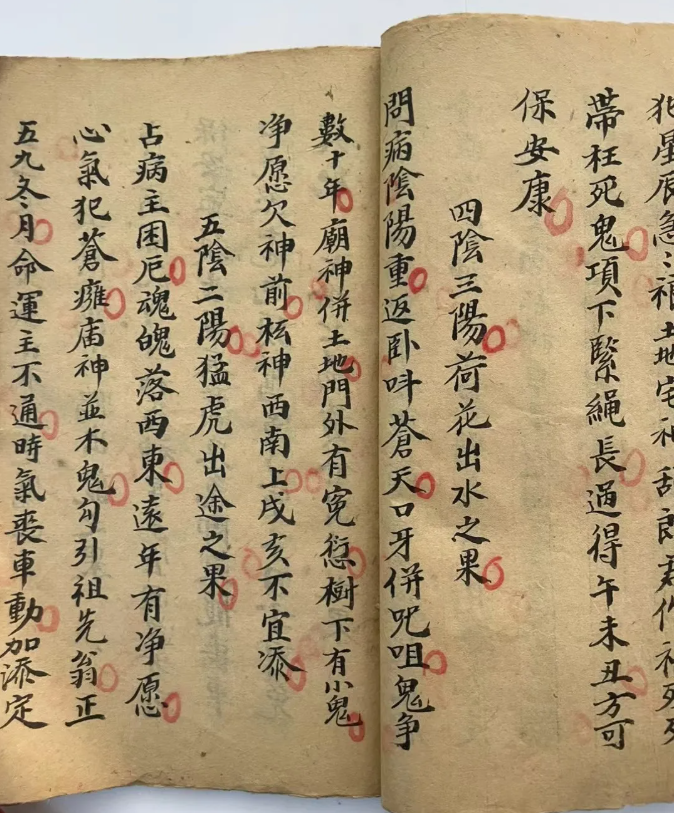 犯星辰急
帶枉死鬼項下緊繩長過得午未丑方可
保安康
四陰三陽荷花出水之果
問病陰陽重返卧呌蒼天口牙併呪咀鬼争
數十年廟神併土地門外有冤愆樹下有小鬼
净愿欠神前枟神西南上戌亥不宜添
五陰二陽猛虎出途之果
占病主困厄魂魄落西東遠年有净愿
心氣犯蒼癰庙神並木鬼勾引祖先翁正
五九冬月命運主不通時氣喪車動加添定